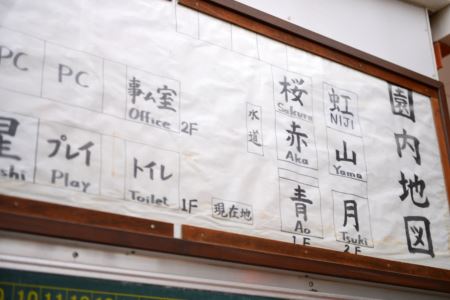 園内地図
虹
NIJI
山
Yama
月
Tsuki
2F
桜
Sakura
赤
Aka
青
Ao
1F
水道
現在地
事ム室
Office
2F
トイレ
Toilet
1F
PC
PC
プレイ
Play
星
shi
10 11 12